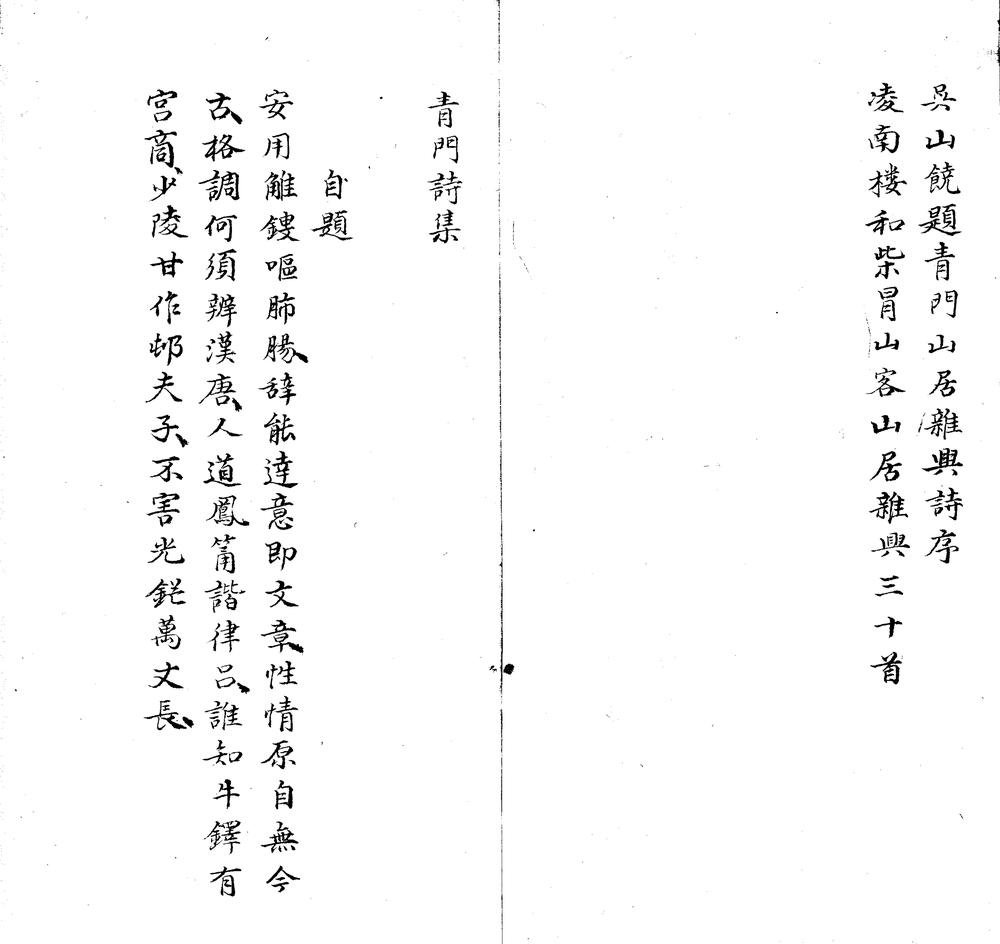 吳山饒題青門山居雜興詩序
凌南樓和柴冐山客山居雜興三十首
青門詩集
自題
安用雕鎪嘔肺腸、辞能達意即文章、性情原自無今
古、格調何須辨漢唐、人道鳳簫諧律呂、誰知牛鐸有
宫商、少陵甘作邨夫子、不害光鋩萬丈長、